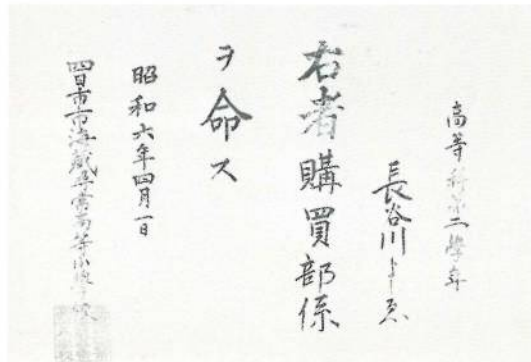 高等科第二學年
長谷川としゑ
右者購買部係
ヲ命ス
昭和六年四月一日
四日市市海蔵尋常高等小學校